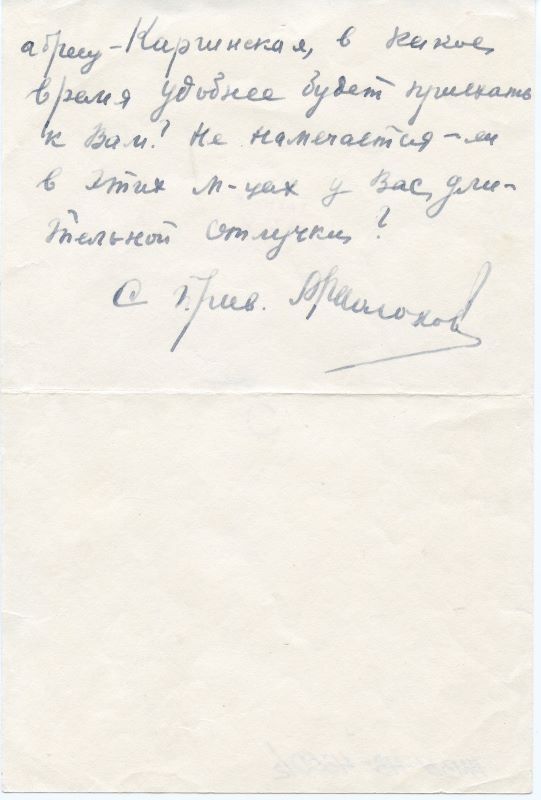 адресу - Каргинская, в какое
время удобнее будет приехать
к Вам? Не намечается-ли
в этих м-цах у Вас дли-
тельной отлучки?
С прив.